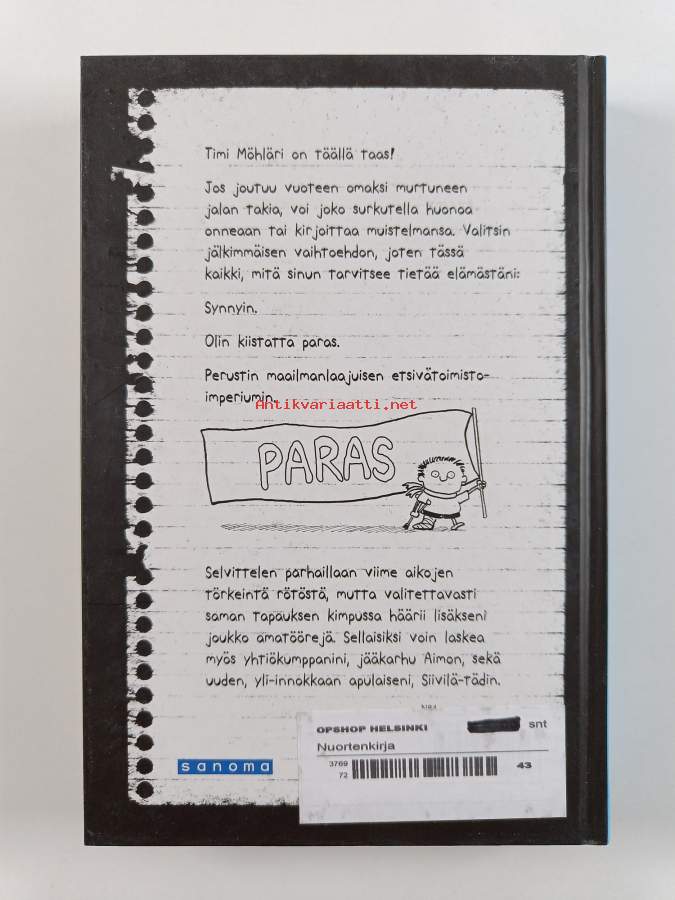 Timi Möhläri on täällä taas!
Jos joutuu vuoteen omaksi murtuneen
jalan takia, voi joko surkutella huonoa
onneaan tai kirjoittaa muistelmansa. Valitsin
jälkimmäisen vaihtoehdon, joten tässä
kaikki, mitä sinun tarvitsee tietää elämästäni:
Synnyin.
Olin kiistatta paras.
Perustin maailmanlaajuisen etsivätoimisto-
imperiumin.
Antikvariaatti.net
PARAS
Selvittelen parhaillaan viime aikojen
törkeintä rötöstä, mutta valitettavasti
saman tapauksen kimpussa häärii lisäkseni
joukko amatöörejä. Sellaisiksi voin laskea
myös yhtiökumppanini, jääkarhu Aimon, sekä
uuden, yli-innokkaan apulaiseni, Siivilä-tädin.
OPSHOP HELSINKI snt
Nuortenkirja
3769
72 43
sanoma